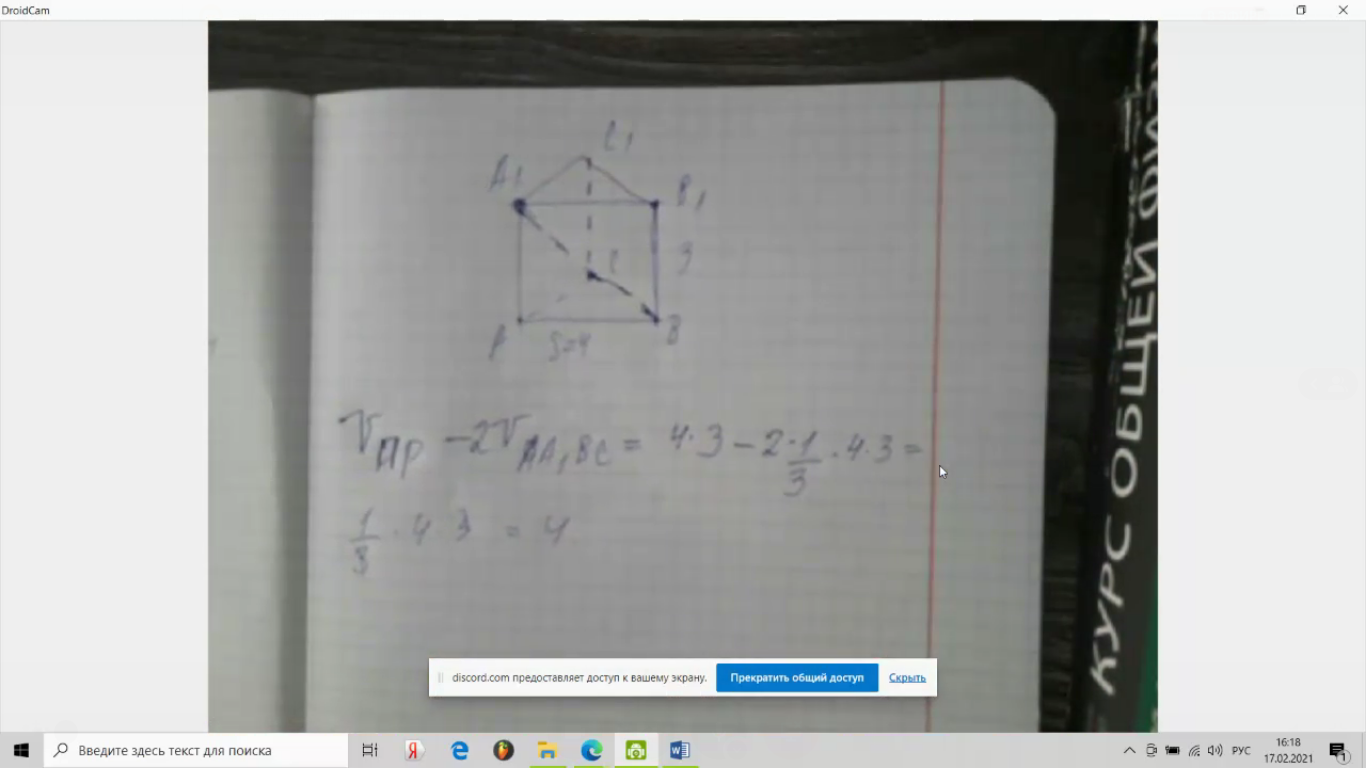 DroidCam
C1
A1
B1
3
C
A
B
S=4
Vпр – 2VAA1BC = 4·3 – 2·1/3·4·3 =
1/3 · 4·3 = 4
КУРС ОБЩЕЙ ФИЗ
discord.com предоставляет доступ к вашему экрану.
Прекратить общий доступ
Скрыть
Введите здесь текст для поиска
Я
W
РУС
16:18
17.02.2021
1